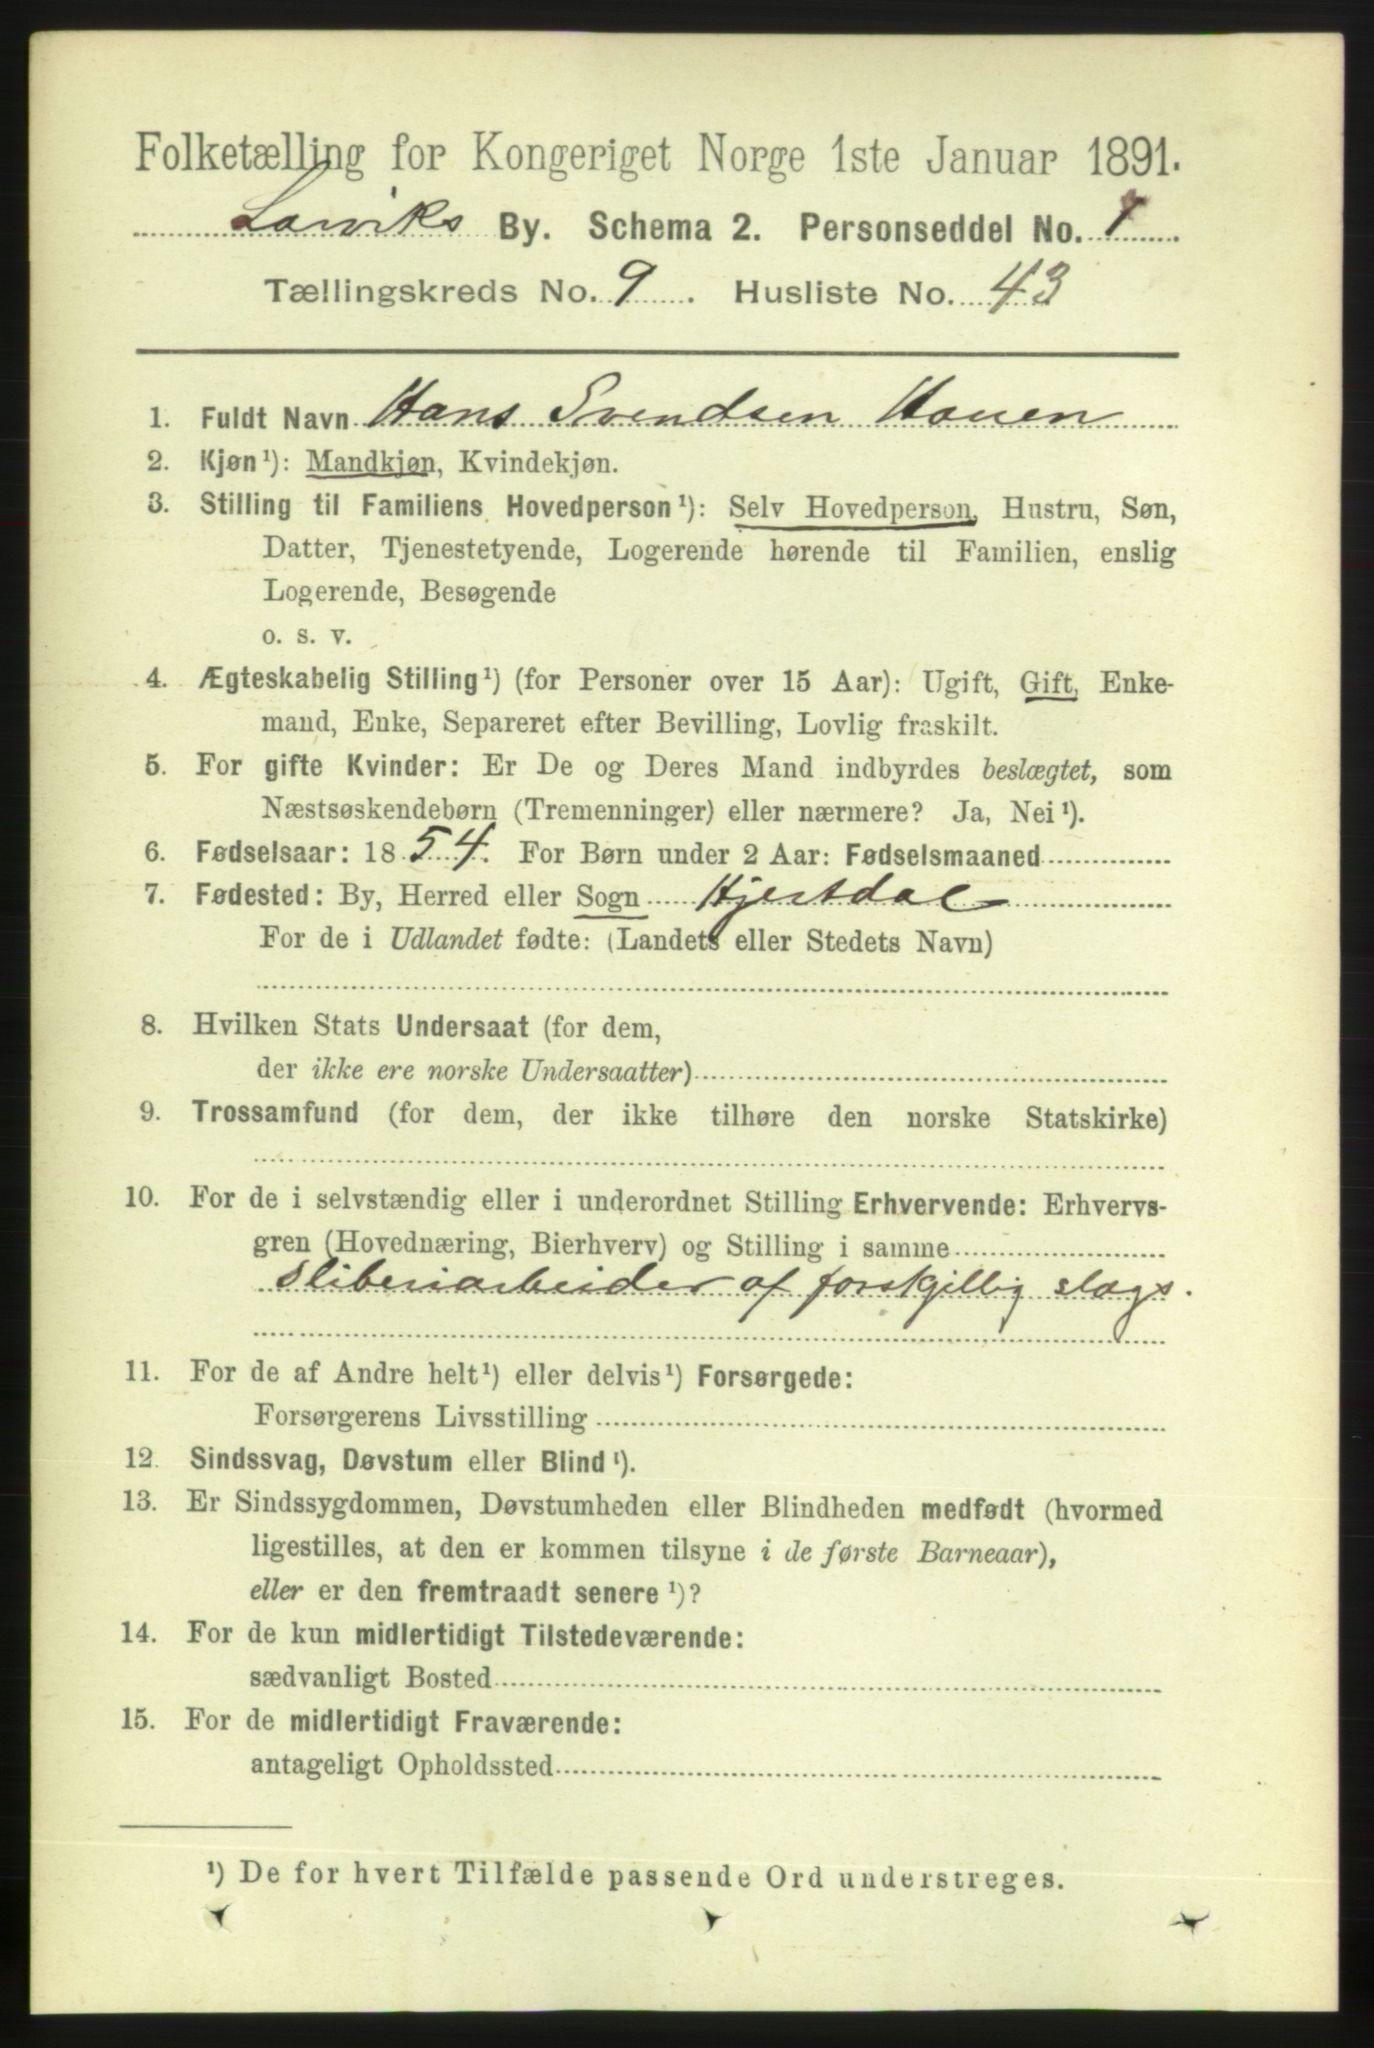 Folketælling for Kongeriget Norge 1ste Januar 1891.
Larviks By. Schema 2. Personseddel No. 1
Tællingskreds No. 9. Husliste No. 43
1. Fuldt Navn Hans Svendsen Hauen
2. Kjøn¹): Mandkjøn, Kvindekjøn.
3. Stilling til Familiens Hovedperson¹): Selv Hovedperson, Hustru, Søn,
Datter, Tjenestetyende, Logerende hørende til Familien, enslig
Logerende, Besøgende
o. s. v.
4. Ægteskabelig Stilling¹) (for Personer over 15 Aar): Ugift, Gift, Enke-
mand, Enke, Separeret efter Bevilling, Lovlig fraskilt.
5. For gifte Kvinder: Er De og Deres Mand indbyrdes beslægtet, som
Næstsøskendebørn (Tremenninger) eller nærmere? Ja, Nei¹).
6. Fødselsaar: 1854. For Børn under 2 Aar: Fødselsmaaned
7. Fødested: By, Herred eller Sogn Hjertdal
For de i Udlandet fødte: (Landets eller Stedets Navn)
8. Hvilken Stats Undersaat (for dem,
der ikke ere norske Undersaatter)
9. Trossamfund (for dem, der ikke tilhøre den norske Statskirke)
10. For de i selvstændig eller i underordnet Stilling Erhvervende: Erhvervs-
gren (Hovednæring, Bierhverv) og Stilling i samme
Sliberiarbeider af forskjellig slags.
11. For de af Andre helt¹) eller delvis¹) Forsørgede:
Forsørgerens Livsstilling
12. Sindssvag, Døvstum eller Blind¹).
13. Er Sindssygdommen, Døvstumheden eller Blindheden medfødt (hvormed
ligestilles, at den er kommen tilsyne i de første Barneaar),
eller er den fremtraadt senere¹)?
14. For de kun midlertidigt Tilstedeværende:
sædvanligt Bosted
15. For de midlertidigt Fraværende:
antageligt Opholdssted
¹) De for hvert Tilfælde passende Ord understreges.